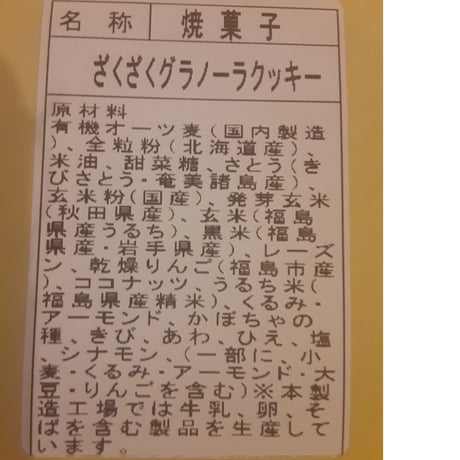 名称 焼菓子
ざくざくグラノーラクッキー
原材料
有機オーツ麦(国内製造
)、全粒粉(北海道産)、
米油、甜菜糖、さとう(き
びさとう・奄美諸島産)、
玄米粉(国産)、発芽玄米
(秋田県産)、玄米(福島
県産うるち)、黒米(福島
県産・岩手県産)、レーズ
ン、乾燥りんご(福島市産
)、ココナッツ、うるち米(
福島県産精米)、くるみ・
アーモンド、かぼちゃの
種、きび、あわ、ひえ、塩
、シナモン、(一部に、小
麦・くるみ・アーモンド・大
豆・りんごを含む)※本製
造工場では牛乳、卵、そ
ばを含む製品を生産して
います。